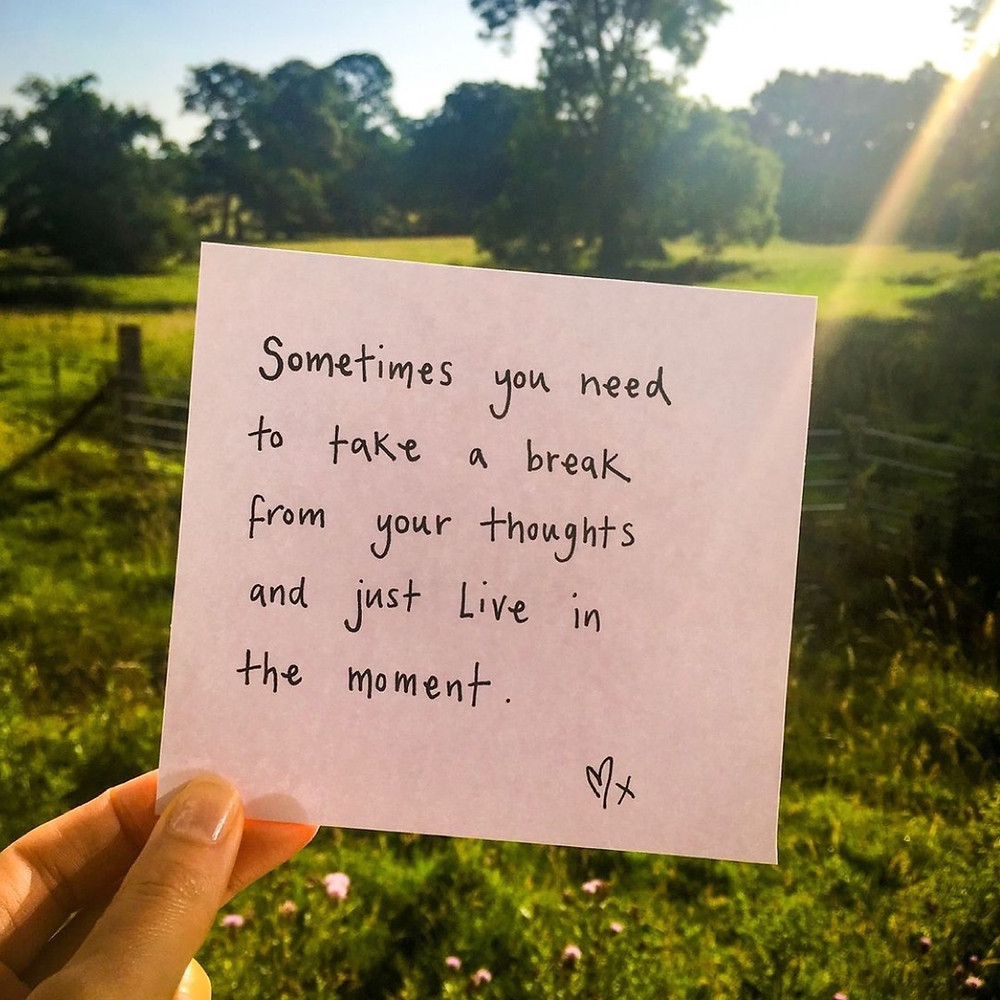 Sometimes you need
to take a break
from your thoughts
and just live in
the moment.
♡x